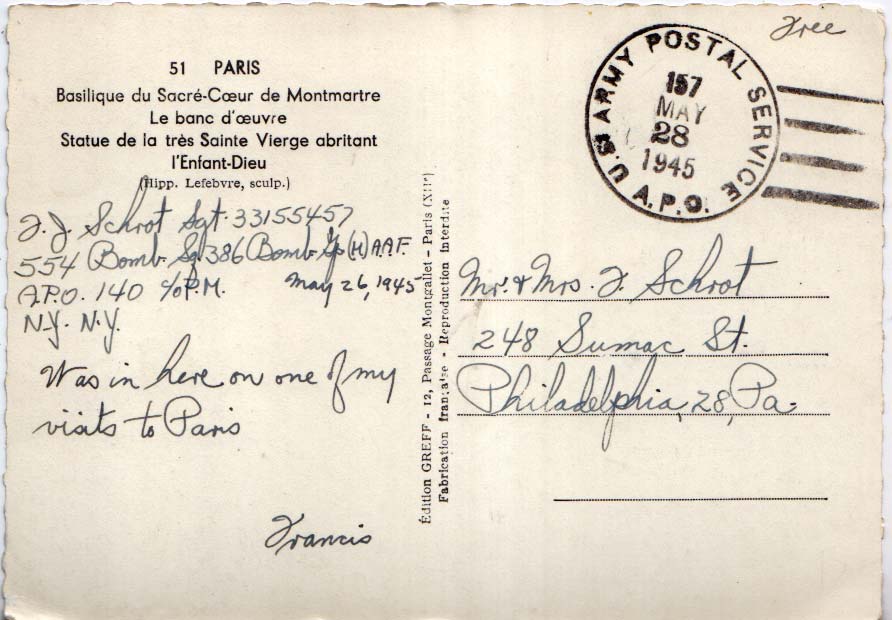 51 PARIS
Basilique du Sacré-Cœur de Montmartre
Le banc d'œuvre
Statue de la très Sainte Vierge abritant
l'Enfant-Dieu
(Hipp. Lefebvre, sculp.)
F. J. Schrot Sgt. 33155457
554 Bomb. Sq. 386 Bomb. Gp (M) A.A.F.
A.P.O. 140 c/o P.M. May 26, 1945
N.Y. N.Y.
Was in here on one of my
visits to Paris
Francis
Édition GREFF - 12, Passage Montgallet - Paris (XIIe)
Fabrication française - Reproduction interdite
Free
U.S. ARMY POSTAL SERVICE
157
MAY
28
1945
A.P.O.
Mr. & Mrs. F. Schrot
248 Sumac St.
Philadelphia, 28, Pa.